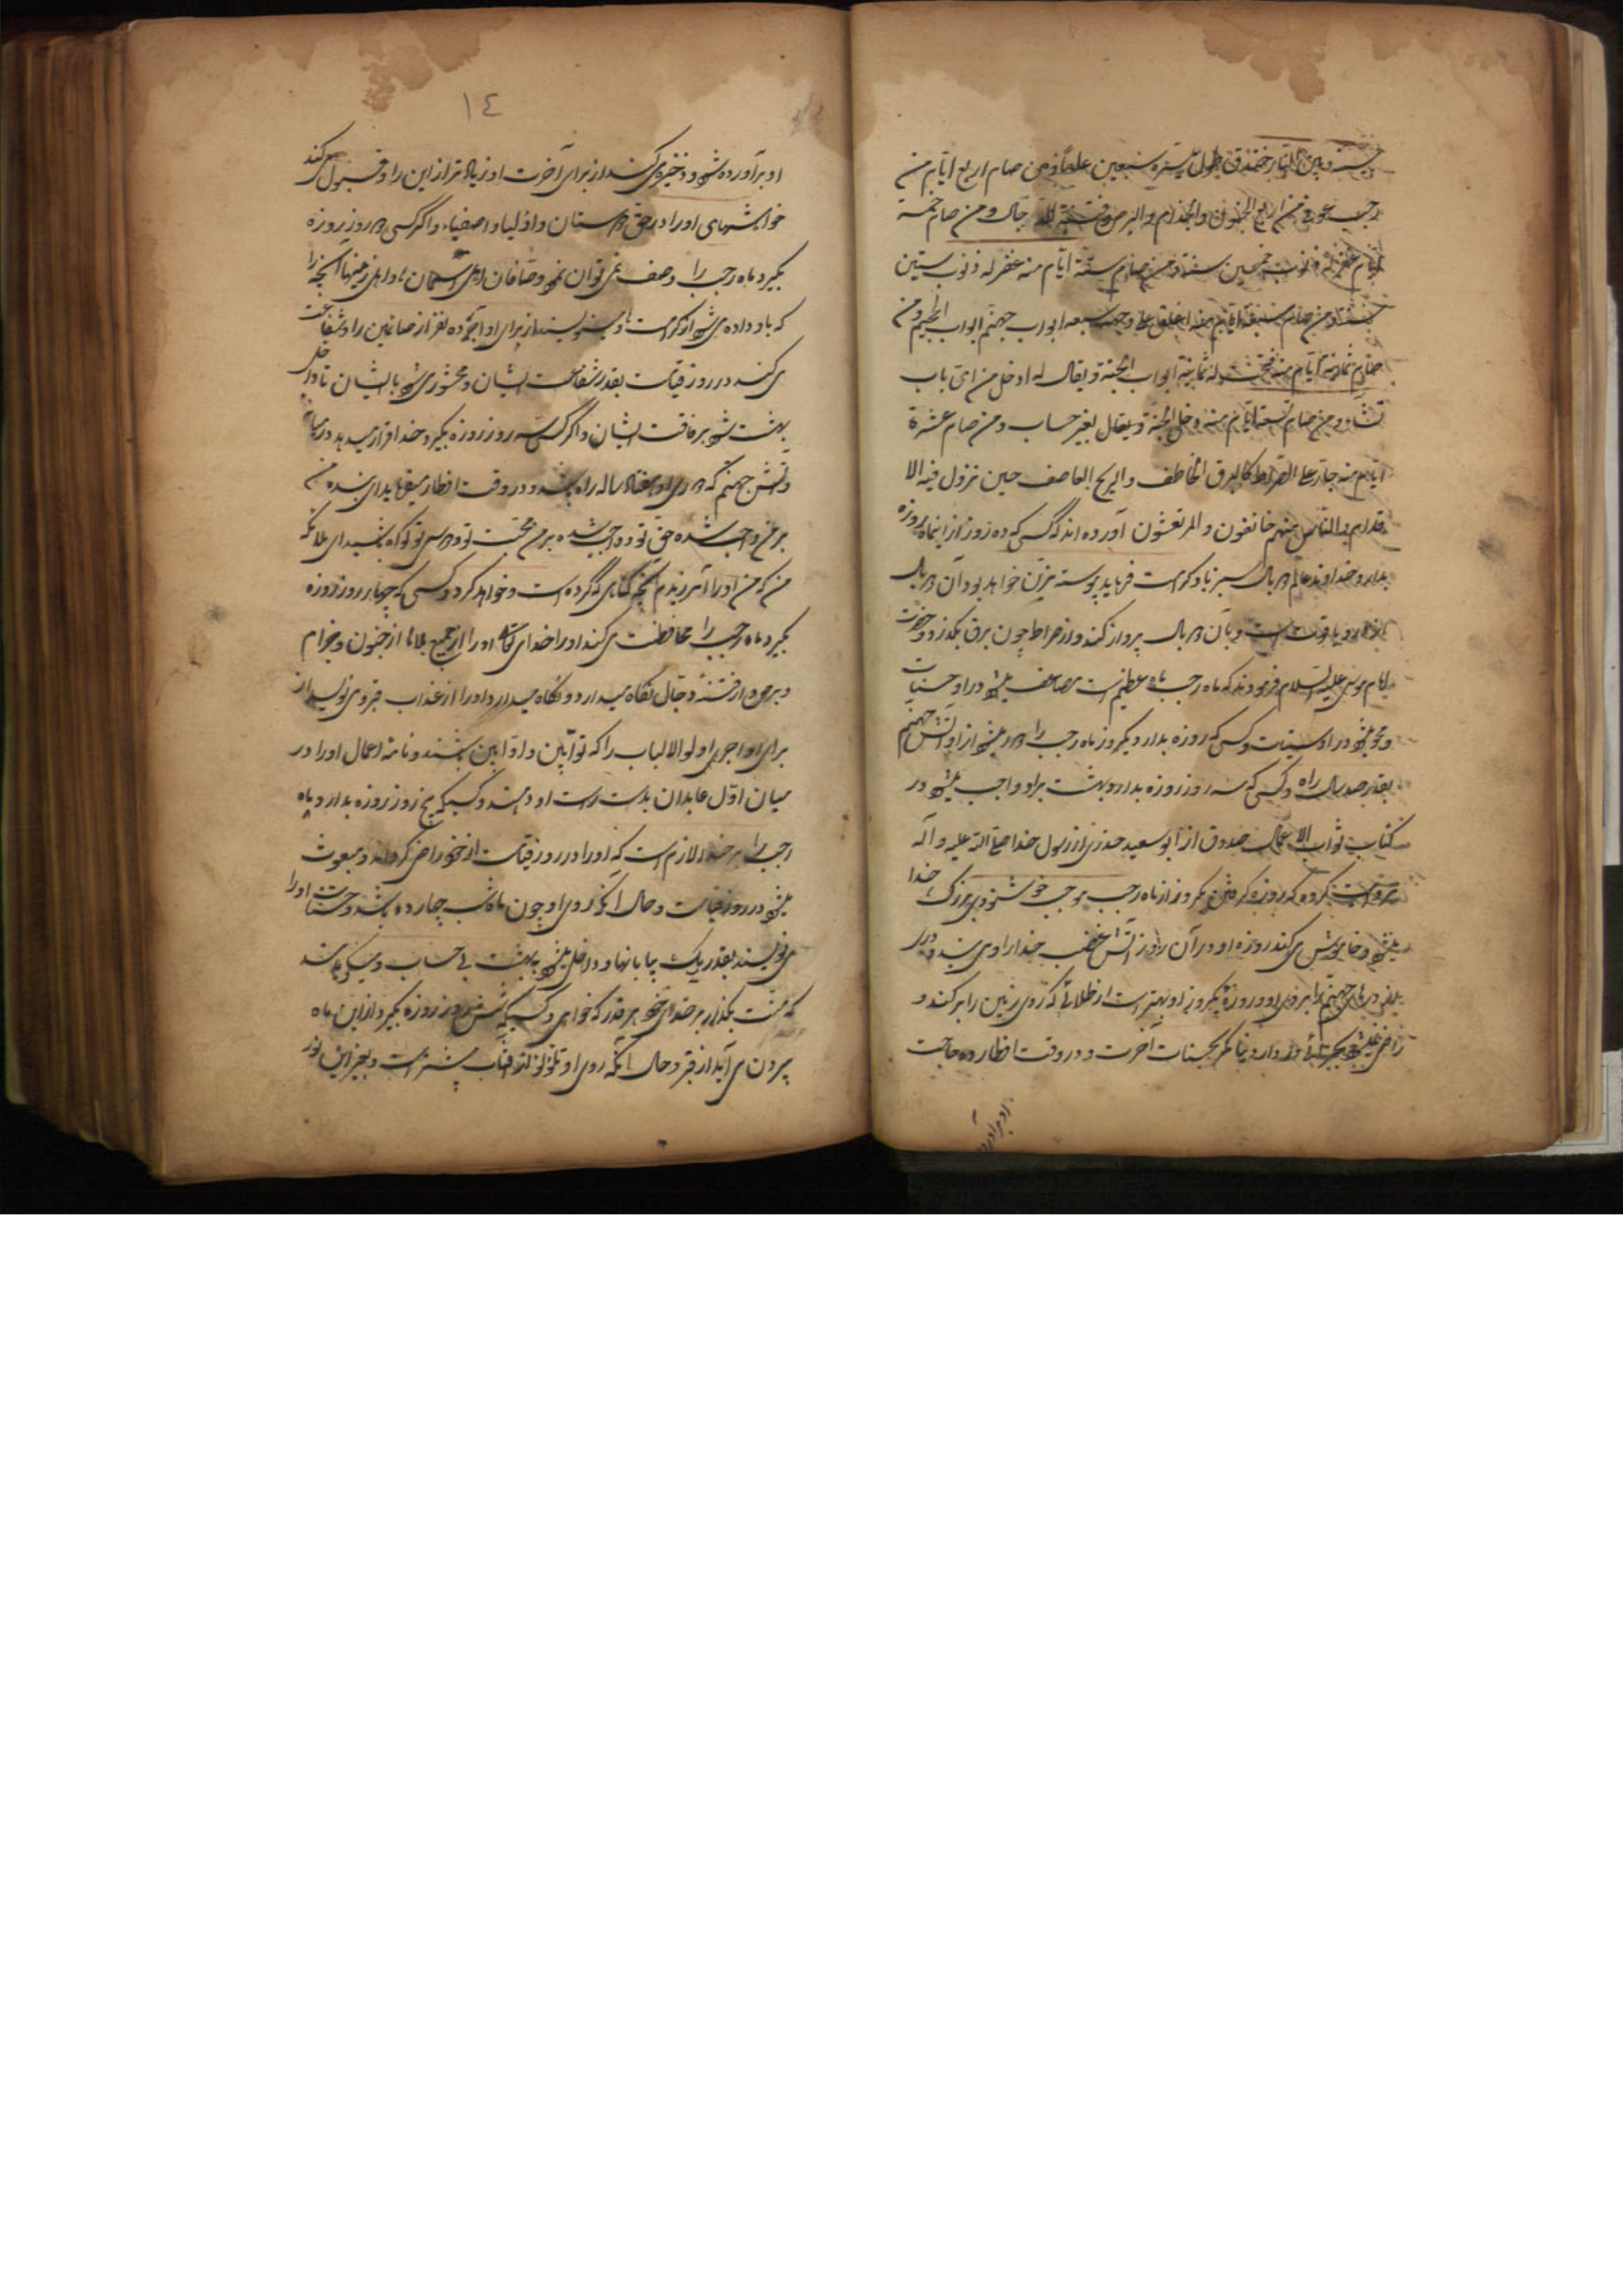 بینه و بین النار خندق طول مسیره سبعین عاما و من صام اربع ایام من
رجب عوفی من اربع الجنون والجذام والبرص و فتنة الدجال و من صام خمسة
ایام غفر له ذنوب خمسین سنة و من صام ستة ایام منه غفر له ذنوب ستین
سنة و من صام سبعة ایام منه اغلق علی وجهه سبعه ابواب جهنم ابواب الجحیم و من
صام ثمانیة ایام منه فتحت له ثمانیة ابواب الجنة و یقال له ادخل من ای باب
تشاء و من صام تسعة ایام منه دخل الجنة و یقال بغیر حساب و من صام عشرة
ایام منه جاز علی الصراط کالبرق الخاطف والریح العاصف حین تزول فیه الا
قدام والناس منهم خائفون والمرتعشون آورده اند که کسی که ده روز از اینماه روزه
بدارد خداوند عالم دو بال سبز باو کرامت فرماید پیوسته مزین خواهد بود آن دو بال
و یاقوت است و بآن دو بال پرواز کند و از صراط چون برق بگذرد و حضرت
امام موسی علیه السلام فرمودند که ماه رجب ماه عظیم است مضاعف میشود در او حسنات
و محو میشود در او سیئات و کسی که روزه بدارد یکروز ماه رجب را دور میشود از او آتش جهنم
بقدر صد سال راه و کسی که سه روز روزه بدارد بهشت بر او واجب میشود در
کتاب ثواب الاعمال صدوق از ابو سعید خدری از رسول خدا صلی الله علیه و آله
روایت کرده که روزه گرفتن یکروز از ماه رجب موجب خوشنودی بزرگ خدا
میشود و خاموش می کند روزه او در آن روز آتش غضب خدا را و می بندد دری
از درهای جهنم را بر روی او و روزهٔ یکروز او بهتر است از طلائی که روی زمین را پر کند و
راضی نمیشود بچیزی در دار دنیا مگر بحسنات آخرت و در وقت افطار ده حاجت
او برآورده
١٤
او برآورده شود و ذخیره می کنند از برای آخرت او زیاده تر از این را و قبول می کند
خواهشهای او را در حق دوستان و اولیا و اصفیاء و اگر کسی دو روز روزه
بگیرد ماه رجب را وصف نمی توان نمود وصافان اهل آسمان ها و اهل زمینها آنچه را
که باو داده می شود از کرامت ها و مینویسند از برای او اجر ده نفر از صائمین را و شفاعت
می کند در روز قیامت بقدر شفاعت ایشان و محشور می شود با ایشان تا داخل
بهشت شود برفاقت ایشان و اگر کسی سه روز روزه بگیرد خدا قرار میدهد در میان او
و آتش جهنم که دوری او هفتاد ساله راه باشد و در وقت افطار میفرماید ای بنده من
بر من واجب شده حق تو و واجب شده بر من محبت تو و دوستی تو گواه باشید ای ملائکه
من که من او را آمرزیدم آنچه گناهی که کرده است و خواهد کرد و کسی که چهار روز روزه
بگیرد ماه رجب را محافظت می کند او را خدای تعالی او را از جمیع بلاها از جنون و جذام
و برص و از فتنهٔ دجال نگاه میدارد و نگاه میدارد او را از عذاب قبر و می نویسد از
برای او اجر اولوالالباب را که توابین و اوابین باشند و نامهٔ اعمال او را در
میان اول عابدان بدست راست او دهند و کسیکه پنج روز روزه بدارد ماه
رجب را بر خدا لازم است که او را در روز قیامت از خود راضی گرداند و مبعوث
میشود در روز قیامت و حال آنکه روی او چون ماه شب چهارده باشد و حسنات او را
می نویسند بقدر ریک بیابانها و داخل میشود بهشت بی حساب و میگویند
که منت بگذار بر خدای خود هر قدر که خواهی و کسیکه شش روز روزه بگیرد از این ماه
بیرون می آید از قبر و حال آنکه روی او نورانی تر از آفتاب است و بغیر این نور